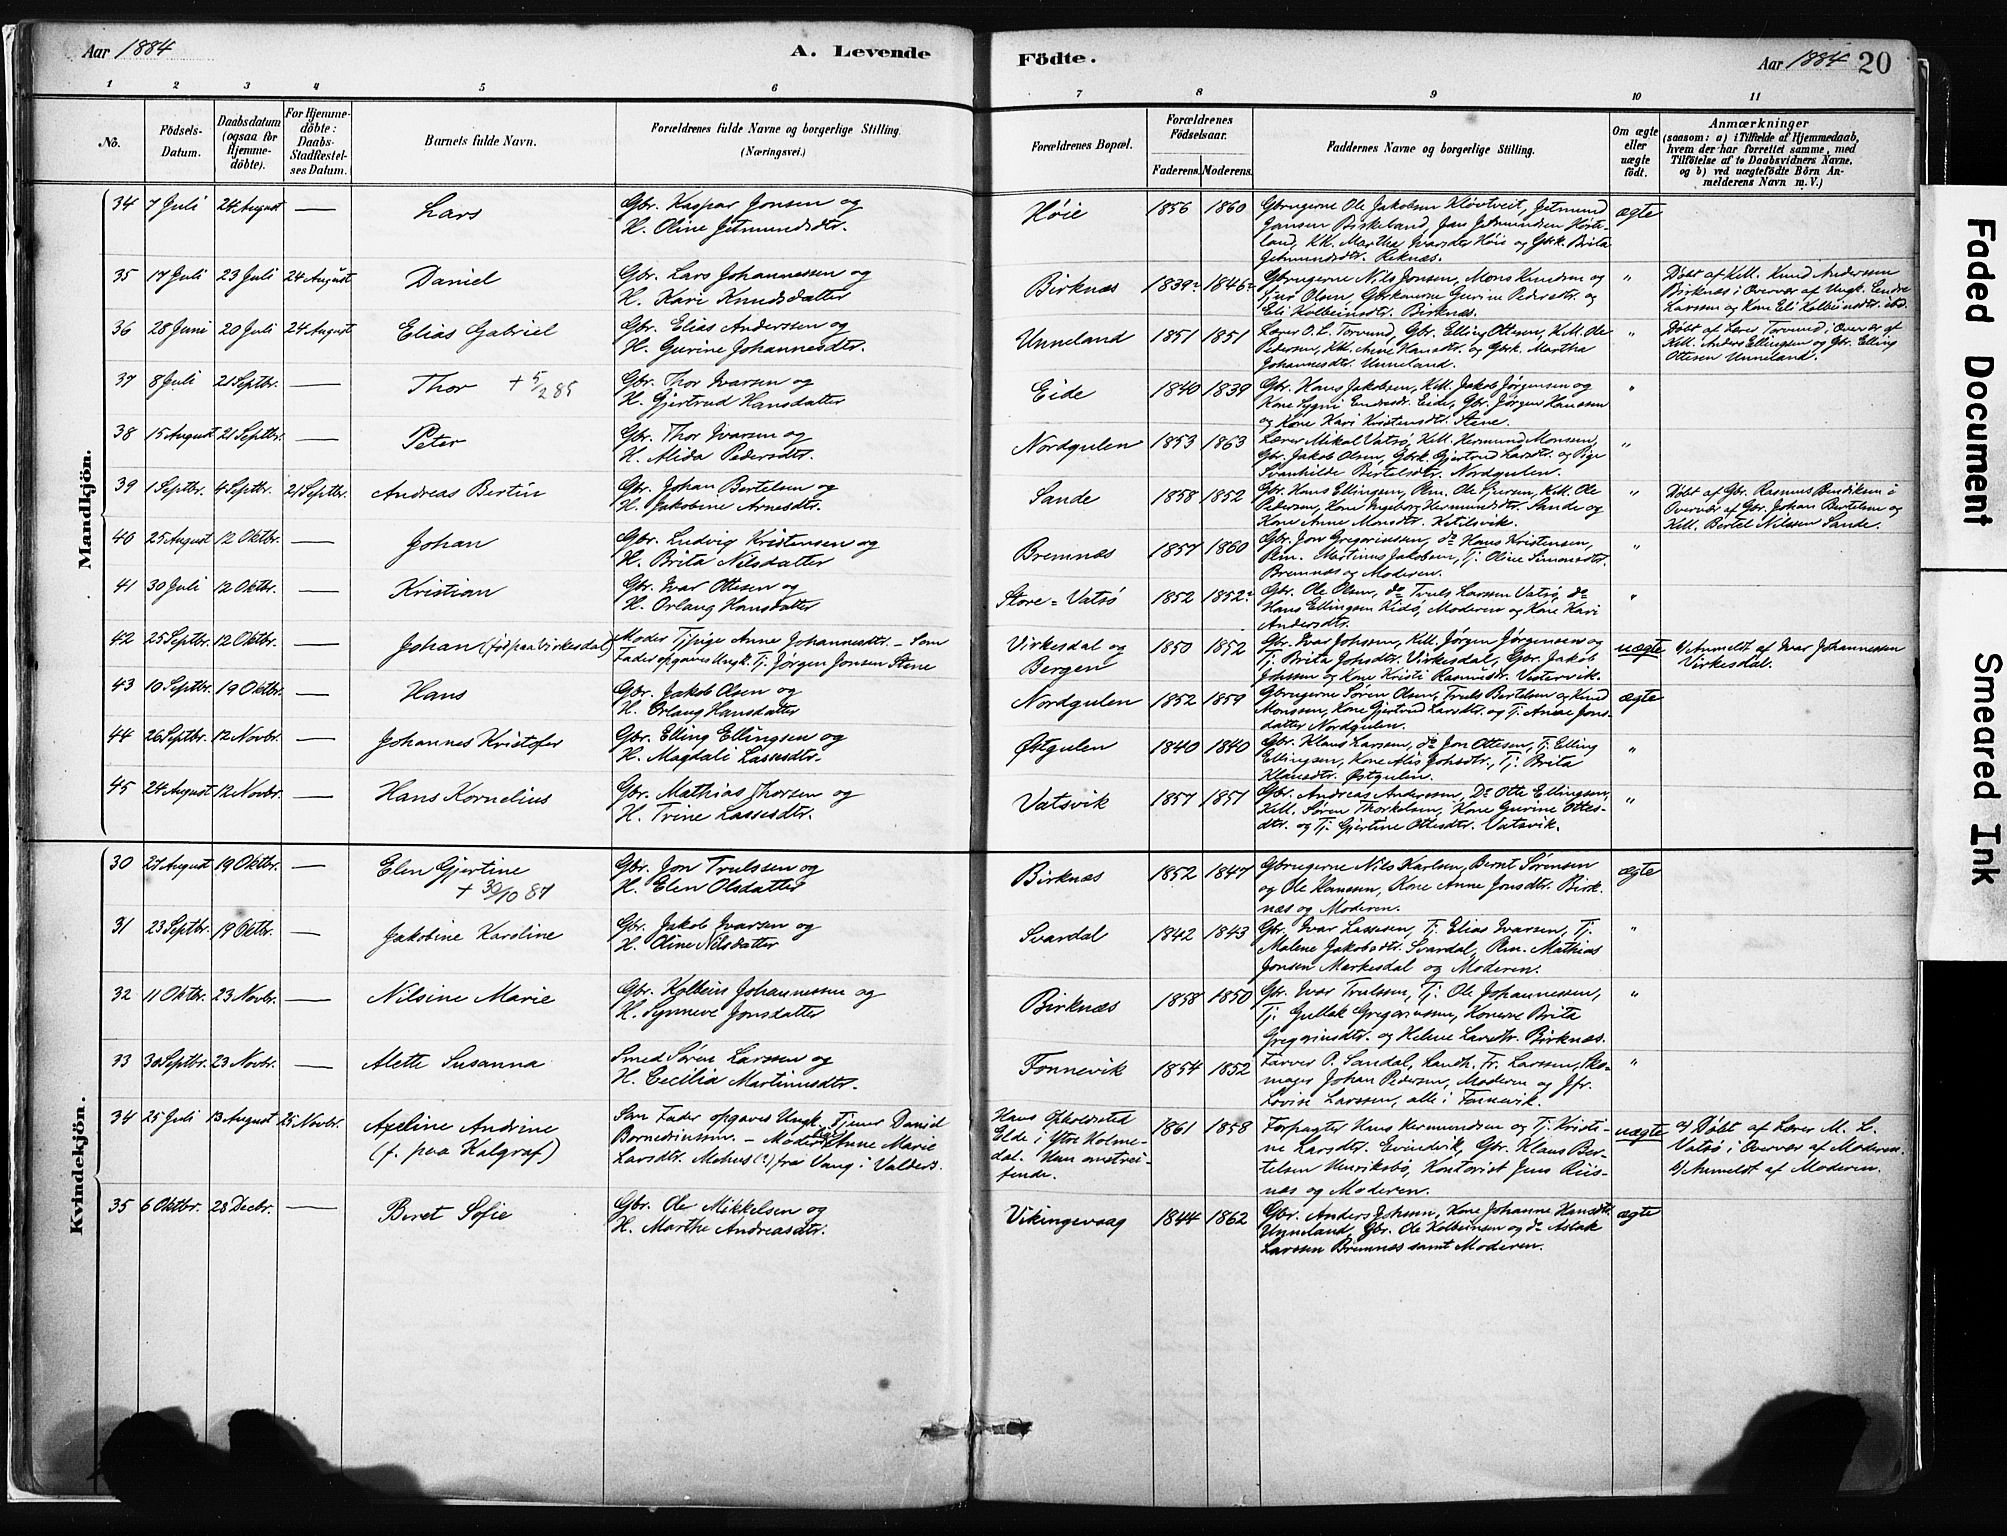 Aar 1884
A. Levende
Födte.
Aar 1884 20
1 2 3 4 5 6 7 8 9 10 11
No.
Födsels-
Datum.
Daabsdatum
(ogsaa för
Hjemme-
döbte).
For Hjemme-
döbte:
Daabs-
Stadfæstel-
ses Datum.
Barnets fulde Navn.
Forældrenes fulde Navne og borgerlige Stilling.
(Næringsvei.)
Forældrenes Bopæl.
Forældrenes
Födselsaar.
Faderens. Moderens.
Faddernes Navne og borgerlige Stilling.
Om ægte
eller
uægte
födt.
Anmærkninger
(saasom: a) i Tilfælde af Hjemmedaab,
hvem der har forrettet samme, med
Tilföielse af to Daabsvidners Navne,
og b) ved uægtefödte Börn An-
melderens Navn m. V.)
Mandkjön.
34 7 Juli 24 August — Lars
Gbr. Kaspar Jonsen og
H. Oline Jetmundsdtr.
Høie 1856 1860
Gbrugerne Ole Jakobsen Kløvtveit, Jetmund
Jansen Birkeland, Jens Jetmundsen Høite-
land, KK. Martha Ivarsdtr Høie og Gbrk. Brita
Jetmundsdtr. Reknæs.
ægte
35 17 Juli 23 Juli 24 August Daniel
Gbr. Lars Johannessen og
H. Kari Knudsdatter
Birknæs 1839 1846
Gbrugerne Nils Jonsen, Mons Knudsen og
Sjur Olsen, Gbrkonerne Gurine Pedersdtr. og
Eli Kolbeinsdtr. Birknæs.
"
Døbt af Kell. Knud Anderssen
Birknæs i Overvær af Ungk. Endre
Larssen og Kone Eli Kolbeinsdtr. ibd.
36 28 Juni 20 Juli 24 August Elias Gabriel
Gbr. Elias Anderssen og
H. Gurine Johannesdtr.
Unneland 1851 1851
Lærer O. L. Torvund, Gbr. Elling Ottesen, Kell. Ole
Pedersen, KK. Anne Hansdtr. og Gbrk. Martha
Johannesdtr. Unneland.
"
Døbt af Lærer Torvund i Overvær af
Kell. Anders Ellingsen og Gbr. Elling
Ottesen Unneland.
37 8 Juli 21 Septbr. — Thor + 5/2 85
Gbr. Thor Ivarsen og
H. Gjertrud Hansdatter
Eide 1840 1839
Gbr. Hans Jakobsen, Kell. Jakob Jørgensen og
Kone Sygni Endresdr. Eide, Gbr. Jørgen Hanssen
og Kone Kari Kristensdtr. Stene.
"
38 15 August 21 Septbr. — Peter
Gbr. Thor Ivarsen og
H. Alida Pedersdtr.
Nordgulen 1853 1863
Lærer Mikal Vatsø, Kell. Hermund Monsen,
Gbr. Jakob Olsen, Gbrk. Gjertrud Larsdtr. og Pige
Svanhilde Bertelsdtr. Nordgulen.
"
39 1 Septbr. 4 Septbr. 21 Septbr. Andreas Bertin
Gbr. Johan Bertelsen og
H. Jakobine Arnesdtr.
Sande 1858 1852
Gbr. Hans Ellingsen, Pm. Ole Sjursen, Kell. Ole
Pedersen, Kone Ingeborg Hermundsdtr. Sande og
Kone Anne Monsdtr. Ketilsvik.
"
Døbt af Gbr. Rasmus Bendiksen i
Overvær af Gbr. Johan Bertelsen og
Kell. Bertel Nilssen Sande.
40 25 August 12 Oktbr. — Johan
Gbr. Ludvig Kristensen og
H. Brita Nilsdatter
Bremnæs 1857 1860
Gbr. Jon Gregoriussen, do Hans Kristensen,
Pm. Martinus Jakobsen, Tj. Oline Simonsdtr.
Bremnæs og Moderen.
"
41 30 Juli 12 Oktbr. — Kristian
Gbr. Ivar Ottesen og
H. Orlaug Hansdatter
Store-Vatsø 1852 1852
Gbr. Ole Olsen, do Truls Larssen Vatsø, do
Hans Ellingsen Eidø, Moderen og Kone Kari
Andersdtr.
"
42 25 Septbr. 12 Oktbr. — Johan (fød paa Virkesdal)
Moder Tj.pige Anne Johannesdtr. – Som
Fader opgaves Ungk. Tj. Jørgen Jonsen Stene
Virkesdal og
Bergen
1850 1852
Gbr. Ivar Johssen, Kell. Jørgen Jørgensen og
Tj. Brita Johsdtr. Virkesdal, Gbr. Jakob
Johssen og Kone Kristi Rasmusdtr. Vestervik.
uægte
b/ Anmeldt af Ivar Johannessen
Virkesdal.
43 10 Septbr. 19 Oktbr. — Hans
Gbr. Jakob Olsen og
H. Orlaug Hansdatter
Nordgulen 1852 1859
Gbrugerne Søren Olsen, Truls Bertelsen og Knud
Monssen, Kone Gjertrud Larsdtr. og Tj. Anne Jons-
datter Nordgulen.
ægte
44 26 Septbr. 12 Novbr. — Johannes Kristofer
Gbr. Elling Ellingsen og
H. Magdali Lassesdtr.
Østgulen 1840 1840
Gbr. Klaus Larssen, do Jon Ottesen, Tj. Elling
Ellingsen, Kone Alis Johsdtr., Tj. Brita
Klausdtr. Østgulen.
"
45 24 August 12 Novbr. — Hans Kornelius
Gbr. Mathias Thorsen og
H. Trine Lassesdtr.
Vatsvik 1857 1857
Gbr. Andreas Anderssen, Do Otte Ellingsen,
Kell. Søren Thorkelsen, Kone Gurine Ottes-
dtr. og Tj. Gjertine Ottesdtr. Vatsvik.
"
Kvindekjön.
30 27 August 19 Oktbr. — Elen Gjertine
+ 30/10 87
Gbr. Jon Trulssen og
H. Elen Olsdatter
Birknæs 1852 1847
Gbrugerne Nils Karlsen, Bernt Sørensen
og Ole Hanssen, Kone Anne Jonsdtr. Birk-
næs og Moderen.
ægte
31 23 Septbr. 19 Oktbr. — Jakobine Karoline
Gbr. Jakob Ivarsen og
H. Oline Nilsdatter
Svardal 1842 1843
Gbr. Ivar Lassesen, Tj. Elias Ivarsen, Tj.
Malene Jakobsdtr. Svardal, Pm. Mathias
Jonsen Merkesdal og Moderen.
"
32 11 Oktbr. 23 Novbr. — Nilsine Marie
Gbr. Kolbein Johannessen og
H. Synneve Jonsdatter
Birknæs 1858 1850
Gbr. Ivar Trulssen, Tj. Ole Johannessen,
Tj. Gullak Gregoriussen, Konerne Brita
Gregoriusdtr. og Helene Larsdtr. Birknæs.
"
33 30 Septbr. 23 Novbr. — Alette Susanna
Smed Søren Larssen og
H. Cecilia Martinusdtr.
Fonnevik 1854 1852
Farver P. Sandal, Landh. Fr. Larssen, Sko-
mager Johan Pedersen, Moderen og Jfr.
Lovise Larssen, alle i Fonnevik.
"
34 25 Juli 13 August 25 Novbr. Axeline Andrine
(f. paa Kalgraf)
Som Fader opgaves Ungk. Tjener Daniel
– Moder Anne Marie
Larsdtr. Mehus (?) fra Vang i Valders.
Hans Opholdssted
Elde i Ytre Holme-
dal. Hun omstrei-
fende.
1861 1858
Forpagter Hans Hermundsen og Tj. Kristi-
ne Larsdtr. Evindvik, Gbr. Klaus Ber-
telsen Henriksbø, Kontorist Jens Riis-
næs og Moderen.
uægte
a/ Døbt af Lærer M. L.
Vatsø i Overvær af Moderen.
b/ Anmeldt af Moderen.
35 6 Oktbr. 28 Decbr. — Beret Sofie
Gbr. Ole Mikkelsen og
H. Marthe Andreasdtr.
Vikingevaag 1844 1862
Gbr. Anders Johssen, Kone Johanne Hansdtr.
Unneland, Gbr. Ole Kolbeinsen og do Aslak
Larssen Bremnæs samt Moderen.
ægte
Faded Document
Smeared Ink